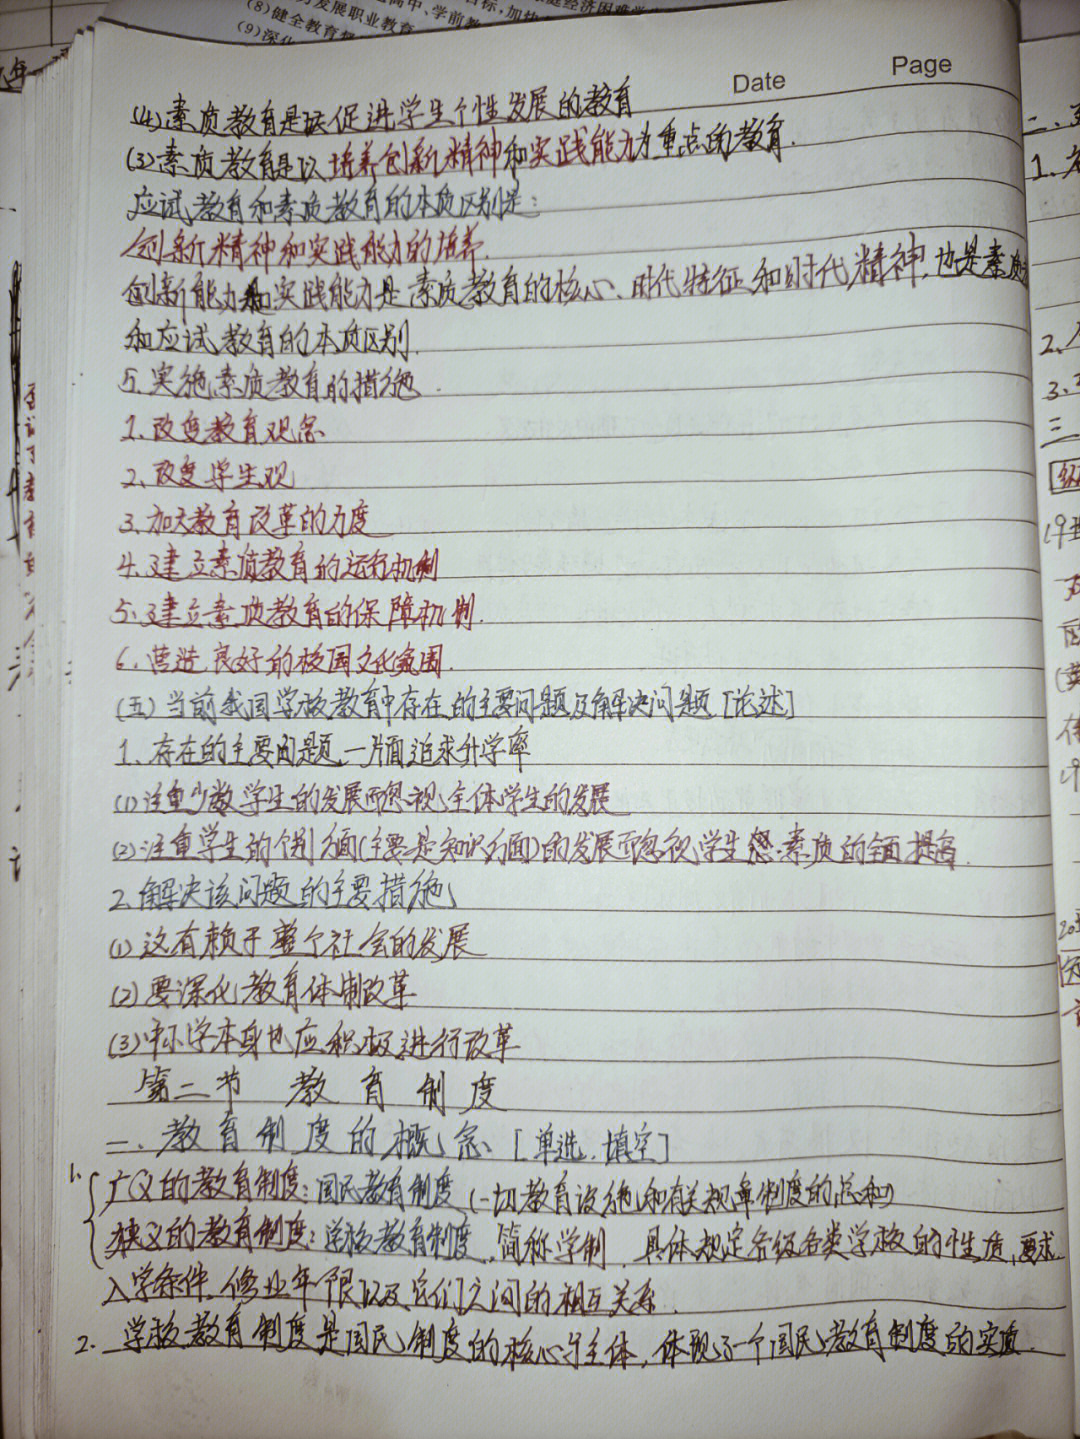 (8)健全教育
发展职业教育
高中、学前教
(9)深化
Date
Page
(4)素质教育是促进学生个性发展的教育
(3)素质教育是以培养创新精神和实践能力为重点的教育.
应试教育和素质教育的本质区别是:
创新精神和实践能力的培养.
创新能力和实践能力是素质教育的核心、时代特征和时代精神,也是素质
和应试教育的本质区别.
5.实施素质教育的措施.
1.改变教育观念
2、改变学生观
3.加大教育改革的力度
4.建立素质教育的运行机制
5.建立素质教育的保障机制.
6.营造良好的校园文化氛围.
(五)当前我国学校教育中存在的主要问题及解决问题[论述]
1.存在的主要问题—片面追求升学率
(1)注重少数学生的发展而忽视全体学生的发展
(2)注重学生的个别方面(主要是知识方面)的发展而忽视学生素质的全面提高.
2.解决该问题的主要措施
(1)这有赖于整个社会的发展
(2)要深化教育体制改革
(3)中小学本身也应积极进行改革
第二节 教育制度
一、教育制度的概念[单选.填空]
1. 广义的教育制度:国民教育制度(一切教育设施和有关规章制度的总和)
狭义的教育制度:学校教育制度,简称学制.具体规定各级各类学校的性质,要求
入学条件.修业年限以及它们之间的相互关系.
2.学校教育制度是国民制度的核心与主体,体现了一个国民教育制度的实质.